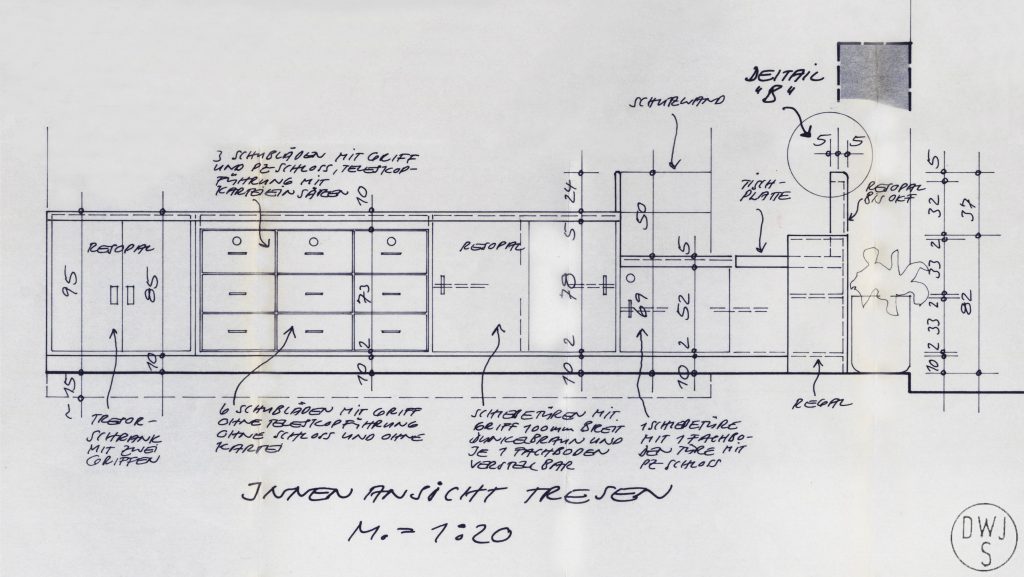 DETTAIL
"B"
SCHUTZWAND
5 5
3 SCHUBLÄDEN MIT GRIFF
UND PZ-SCHLOSS, TELESKOP-
FÜHRUNG MIT
KARTEIEINSÄTZEN
TISCH-
PLATTE
RESOPAL
BIS OKF
10
24
50
5
32
37
RESOPAL
RESOPAL
5
5
2
95
85
73
78
69
52
33
2
82
33
2
2
2
2
10
10
10
10
10
~15
TRESOR-
SCHRANK
MIT ZWEI
GRIFFEN
6 SCHUBLÄDEN MIT GRIFF
OHNE TELESKOPFÜHRUNG
OHNE SCHLOSS UND OHNE
KARTEI
SCHIEBETÜREN MIT
GRIFF 100mm BREIT
DUNKELBRAUN UND
JE 1 FACHBODEN
VERSTELBAR
1 SCHIEBETÜRE
MIT 1 FACHBO-
DEN TÜRE MIT
PZ-SCHLOSS
REGAL
INNENANSICHT TRESEN
M. = 1:20
DWJ
S